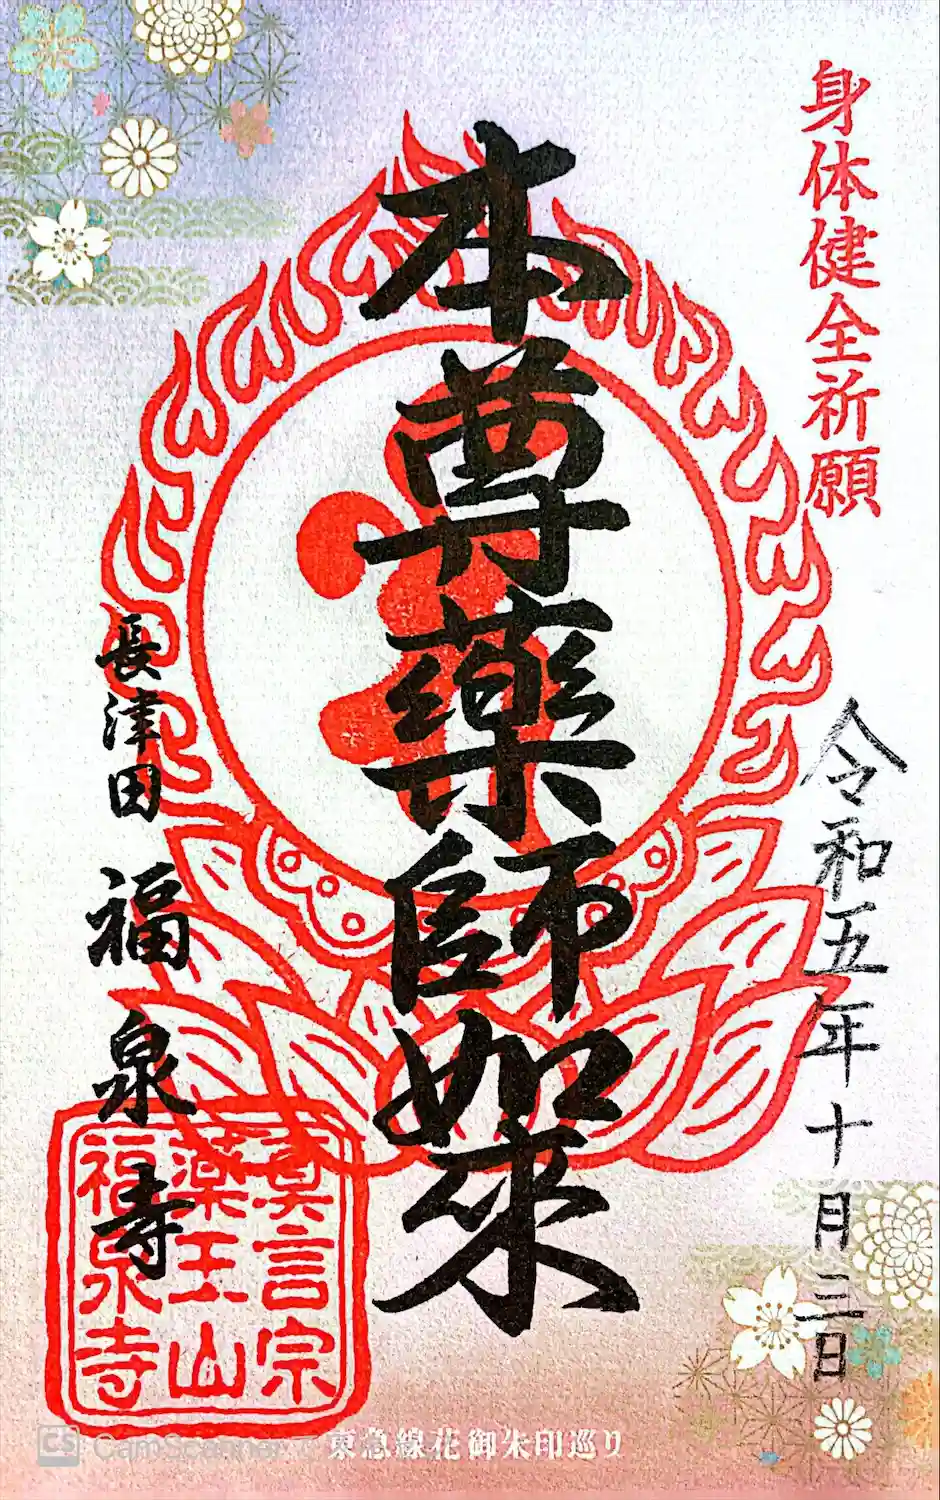 身体健全祈願
令和五年十月三日
本尊薬師如来
長津田 福泉寺
真言宗
薬王山
福泉寺
東急線花御朱印巡り
CS CamScanner